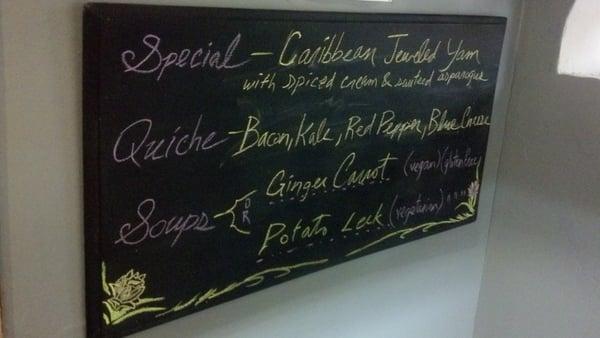 Special - Caribbean Jeweled Yam
with spiced cream & sauteed asparagus
Quiche - Bacon, Kale, Red Pepper, Blue Cheese
Soups OR Ginger Carrot (vegan) (gluten free)
Potato Leek (vegetarian) " " "